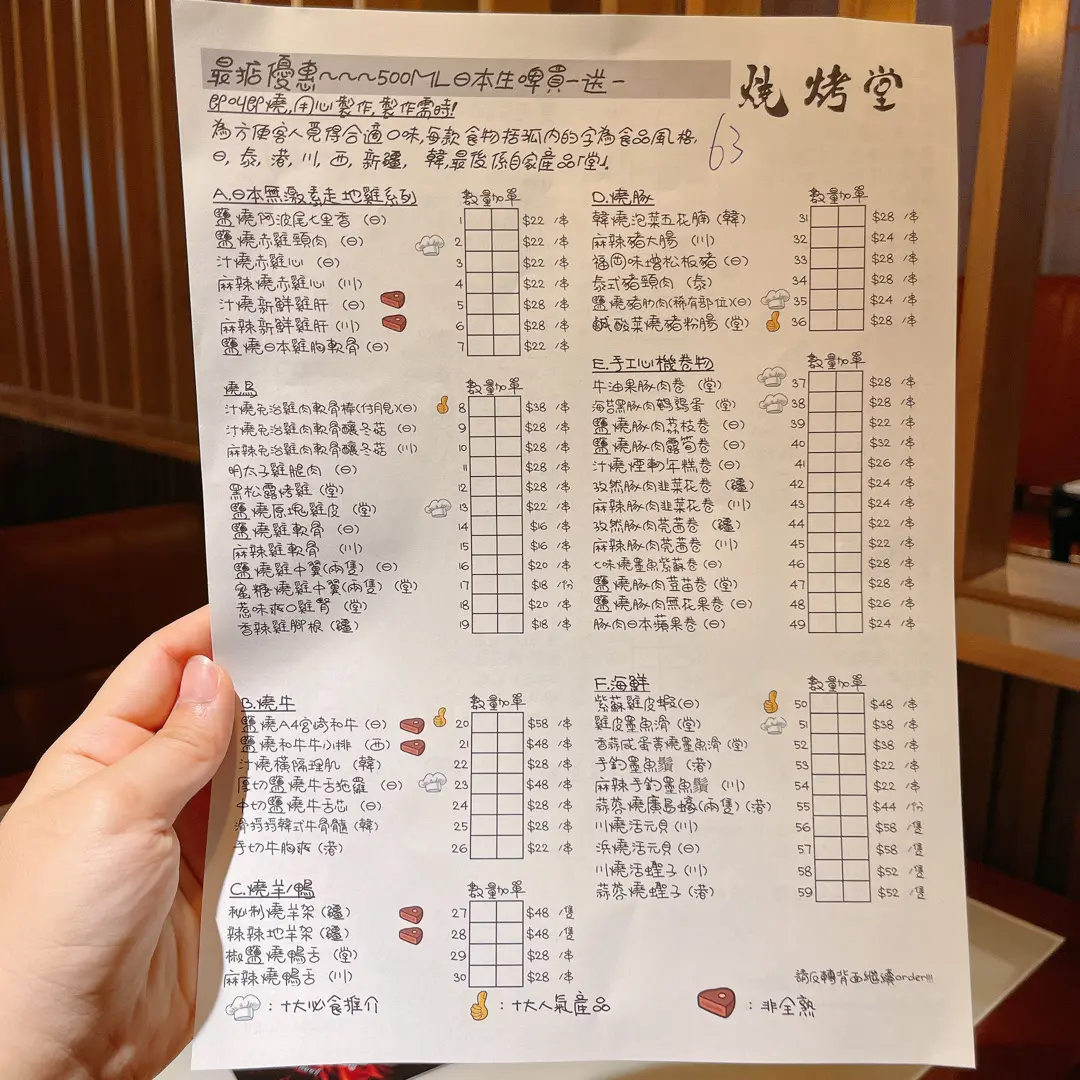 最掂優惠~~~500ML日本生啤買一送一
燒烤堂
即叫即燒,用心製作,製作需時!
為方便客人覓得合適口味,每款食物括弧內的字為食品風格,
日, 泰, 港, 川, 西, 新疆, 韓,最後係自家產品「堂」
63
A.日本無激素走地雞系列 數量加單
鹽燒阿波尾七里香 (日) 1 $22 /串
鹽燒赤雞頸肉 (日) 2 $22 /串
汁燒赤雞心 (日) 3 $22 /串
麻辣燒赤雞心 (川) 4 $22 /串
汁燒新鮮雞肝 (日) 5 $28 /串
麻辣新鮮雞肝 (川) 6 $28 /串
鹽燒日本雞胸軟骨 (日) 7 $22 /串
燒鳥 數量加單
汁燒免治雞肉軟骨棒(付月見)(日) 8 $38 /串
汁燒免治雞肉軟骨釀冬菇 (日) 9 $28 /串
麻辣免治雞肉軟骨釀冬菇 (川) 10 $28 /串
明太子雞腿肉 (日) 11 $28 /串
黑松露烤雞 (堂) 12 $28 /串
鹽燒原塊雞皮 (堂) 13 $22 /串
鹽燒雞軟骨 (日) 14 $16 /串
麻辣雞軟骨 (川) 15 $16 /串
鹽燒雞中翼(兩隻) (日) 16 $20 /串
蜜糖燒雞中翼(兩隻) (堂) 17 $18 /份
惹味爽口雞腎 (堂) 18 $20 /串
香辣雞腳根 (疆) 19 $18 /串
B.燒牛 數量加單
鹽燒A4宮崎和牛 (日) 20 $58 /串
鹽燒和牛牛小排 (西) 21 $48 /串
汁燒橫隔理肌 (韓) 22 $28 /串
厚切鹽燒牛舌拖羅 (日) 23 $48 /串
中切鹽燒牛舌芯 (日) 24 $28 /串
滑捋捋韓式牛骨髓 (韓) 25 $28 /串
手切牛胸爽 (港) 26 $22 /串
C.燒羊/鴨 數量加單
秘制燒羊架 (疆) 27 $48 /隻
辣辣地羊架 (疆) 28 $48 /隻
椒鹽燒鴨舌 (堂) 29 $28 /串
麻辣燒鴨舌 (川) 30 $28 /串
D.燒豚 數量加單
韓燒泡菜五花腩 (韓) 31 $28 /串
麻辣豬大腸 (川) 32 $24 /串
福岡味增松板豬 (日) 33 $28 /串
泰式豬頸肉 (泰) 34 $28 /串
鹽燒豬肋肉(稀有部位)(日) 35 $24 /串
鹹酸菜燒豬粉腸 (堂) 36 $28 /串
E.手工心機卷物 數量加單
牛油果豚肉卷 (堂) 37 $28 /串
海苔黑豚肉鵪鶉蛋 (堂) 38 $28 /串
鹽燒豚肉荔枝卷 (日) 39 $22 /串
鹽燒豚肉露筍卷 (日) 40 $32 /串
汁燒煙韌年糕卷 (日) 41 $26 /串
孜然豚肉韭菜花卷 (疆) 42 $24 /串
麻辣豚肉韭菜花卷 (川) 43 $24 /串
孜然豚肉芫茜卷 (疆) 44 $22 /串
麻辣豚肉芫茜卷 (川) 45 $22 /串
七味燒墨魚紫蘇卷 (日) 46 $28 /串
鹽燒豚肉荳苗卷 (堂) 47 $28 /串
鹽燒豚肉無花果卷 (日) 48 $26 /串
豚肉日本蘋果卷 (日) 49 $24 /串
F.海鮮 數量加單
紫蘇雞皮蝦 (日) 50 $48 /串
雞皮墨魚滑 (堂) 51 $38 /串
香蒜咸蛋黃燒墨魚滑 (堂) 52 $38 /串
手釣墨魚鬚 (港) 53 $22 /串
麻辣手釣墨魚鬚 (川) 54 $22 /串
蒜蓉燒廣島蠔(兩隻) (港) 55 $44 /份
川燒活元貝 (川) 56 $58 /隻
浜燒活元貝 (日) 57 $58 /隻
川燒活蟶子 (川) 58 $52 /隻
蒜蓉燒蟶子 (港) 59 $52 /隻
請反轉背面繼續order!!!
: 十大必食推介
: 十大人氣產品
: 非全熟